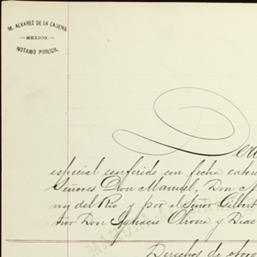 M. ALVAREZ DE LA CADENA
MEXICO.
NOTARIO PUBLICO.
especial conferido con fecha
Señores Don Manuel, Don
del Rio y por el Señor Gilbert
Don Ignacio Olvera y Diaz
Derechos de